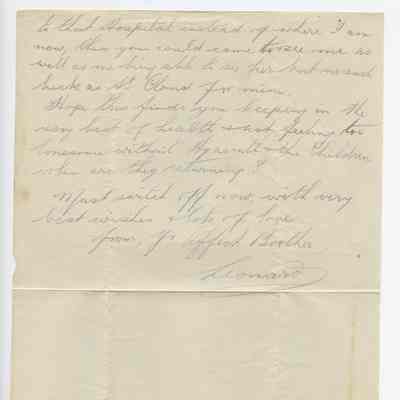 to that Hospital instead of where I am
now, then you could come to see me as
well as me being able to see her but no such
luck as St Cloud for mine.
Hope this finds you keeping in the
very best of health & not feeling too
lonesome without & the Children
when are they returning?
Must switch off now, with very
best wishes & lots of love
from, Yr affect Brother
Leonard